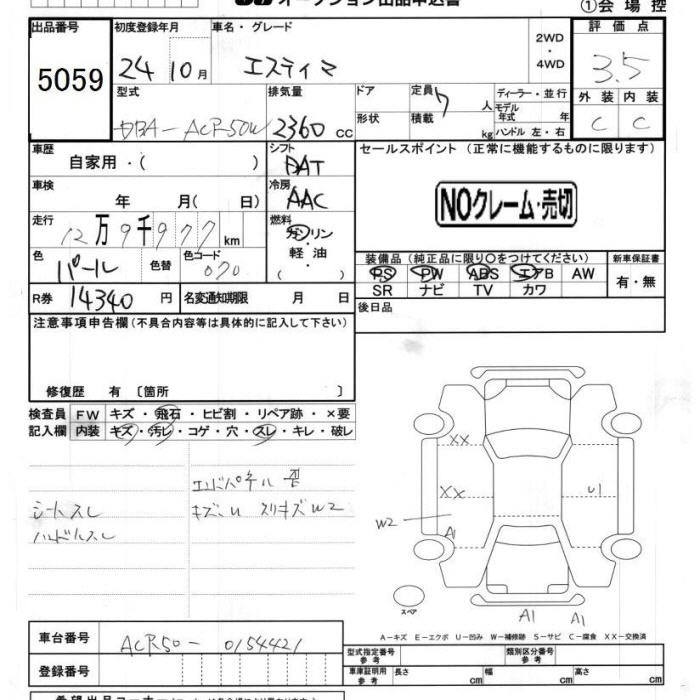 オークション出品申込書
①会場控
出品番号 初度登録年月 車名・グレード 評価点
5059 24 10月 エスティマ 2WD・4WD 3.5
型式 排気量 ドア 定員 7人 ディーラー・並行 外装 内装
DBA-ACR50W 2360cc 形状 積載 kg モデル年式 年 C C
ハンドル 左・右
車歴 シフト セールスポイント (正常に機能するものに限ります)
自家用・( ) DAT
車検 冷房
年 月( 日) AAC NOクレーム・売切
走行 燃料
12万9千977km ガソリン・軽油・( )
色 色替 色コード 装備品 (純正品に限り○をつけてください) 新車保証書
パール 070 PS PW ABS エアB AW 有・無
R券 14340円 名変通知期限 月 日 SR ナビ TV カワ
注意事項申告欄(不具合内容等は具体的に記入して下さい) 後日品
修復歴 有 〔箇所 〕
検査員 FW キズ・飛石・ヒビ割・リペア跡・×要
記入欄 内装 キズ・汚レ・コゲ・穴・スレ・キレ・破レ
XX
エンドパネル歪
XX U1
シートスレ キズ、U スリキズW2
W2
ハンドルスレ A1
スペア
A1 A1
A-キズ E-エクボ U-凹み W-補修跡 S-サビ C-腐食 XX-交換済
車台番号 ACR50-0154421
型式指定番号 参考 類別区分番号 参考
登録番号 車庫証明用 参考 長さ cm 幅 cm 高さ cm